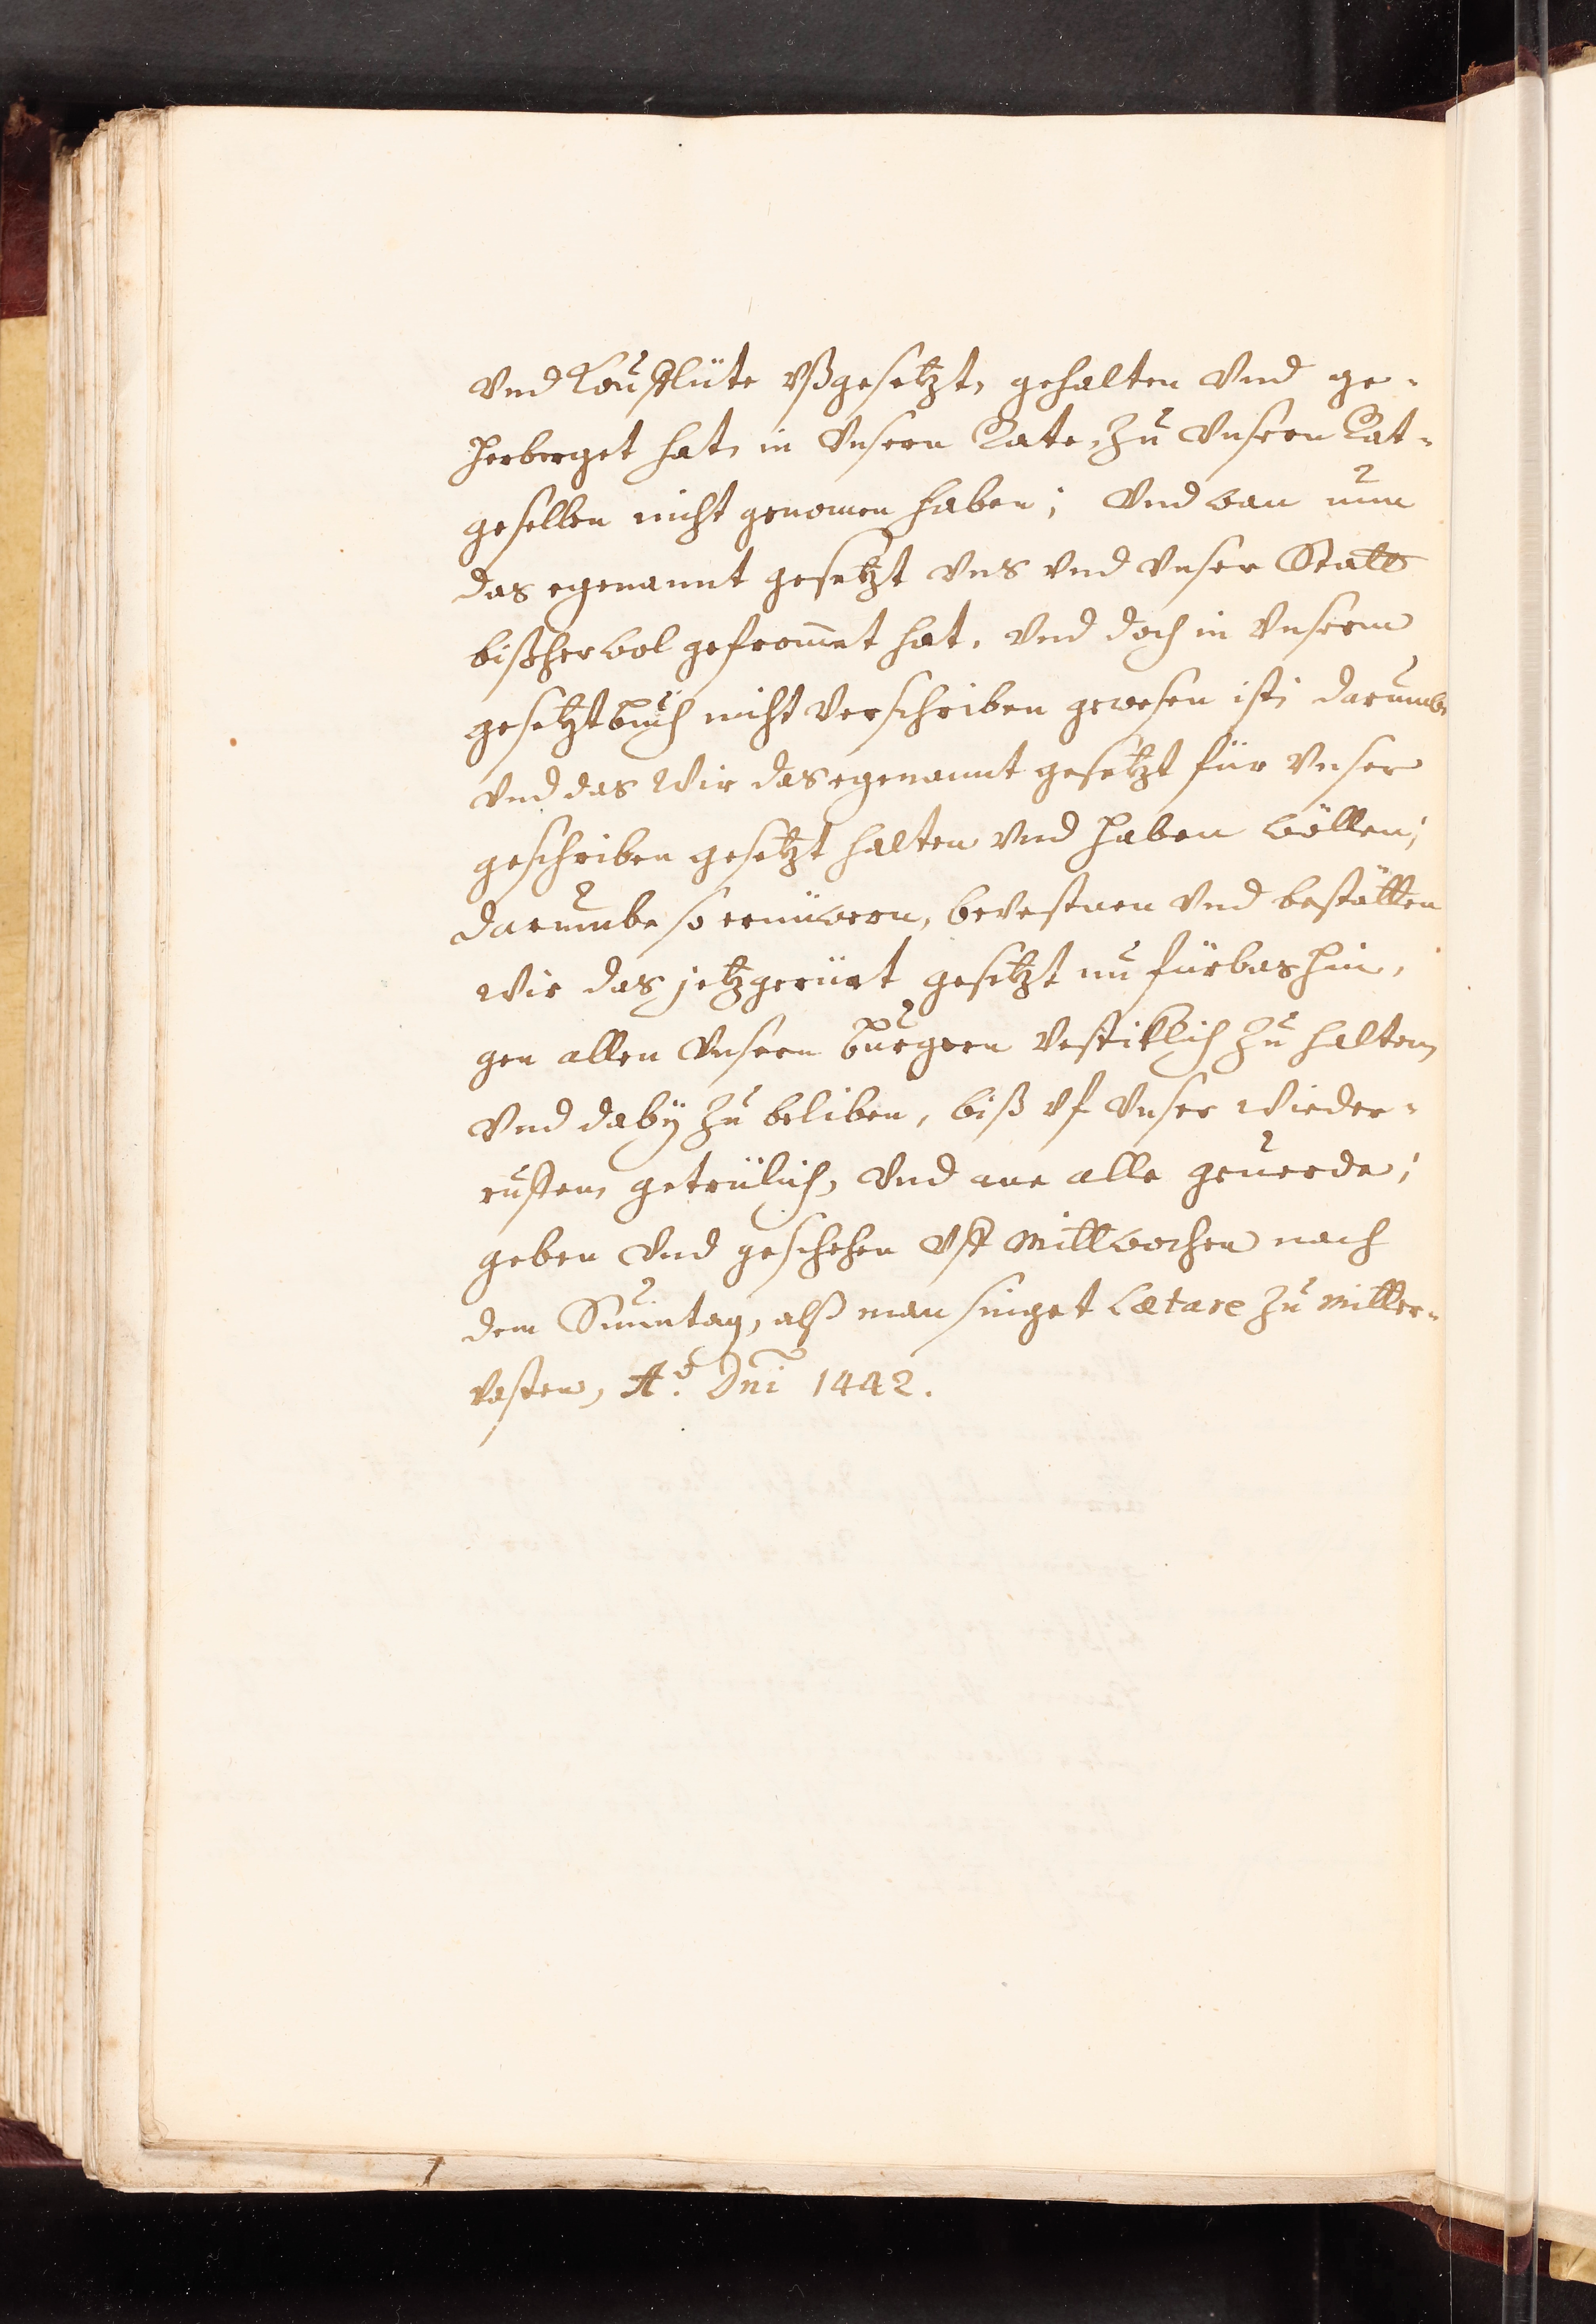 Vnd Kouflüte vßgesetzt, gehalten Vnd ge-
herberget hat, in Vnsern Rate, zu Vnsern Rat-
gesellen nicht genomen haben; Vnd wan nun
das egenannt gesetzt vns vnd vnser Statt
bißher wol gefrom̃et hat, Vnd doch in Vnserm
gesetztbuch nicht Verschriben gewesen ist; darumbe
Vnd das Wir das egenannt gesetzt für Vnser
geschriben gesetzt halten vnd haben wöllen;
darumbe so ernüwern, bevestnen vnd bestätten
Wir das jetzgerürt gesetzt nu fürbashin,
gen allen Vnsern burgern Vestiklich zu halten,
Vnd daby zu beliben, biß vf Vnser Wieder-
ruffen, getrülich, Vnd ane alle geuerde;
geben Vnd geschehen Vff Mittwochen nach
dem Sunntag, alß man singet Lætare zu Mitter-
vasten, Aō. Dn̄i 1442.